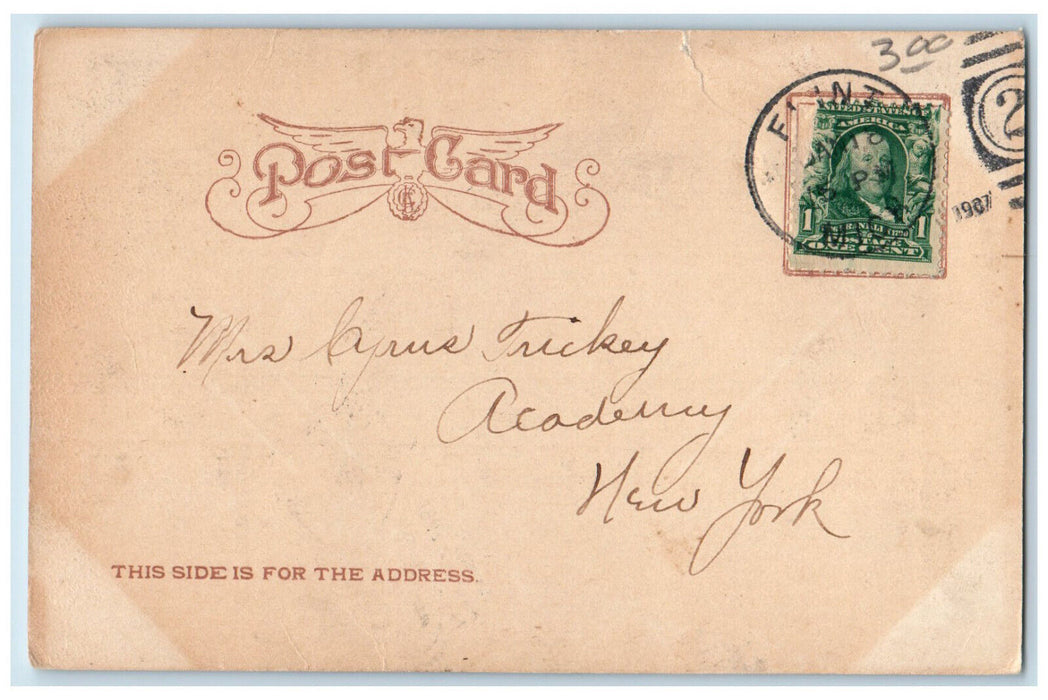 3 00
Post Card
FLINT
JAN 18
PM
MICH
1907
2
UNITED STATES
AMERICA
1 FRANKLIN 1
POSTAGE
ONE CENT
Mrs Cyrus Trickey
Academy
New York
THIS SIDE IS FOR THE ADDRESS.